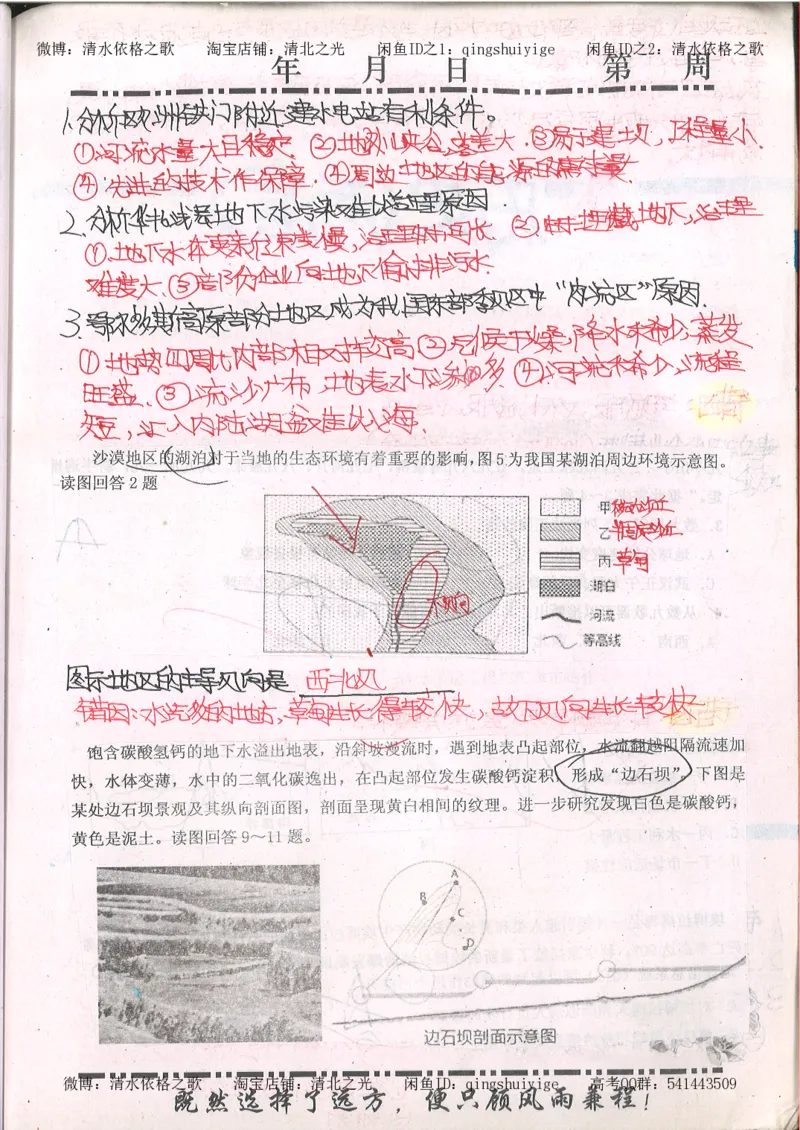 微博：清水依格之歌 淘宝店铺：清北之光 闲鱼ID之1：qingshuiyige 闲鱼ID之2：清水依格之歌
年 月 日 第 周
1.分析区九洲铁门附近建水电站有利条件。
①河流水量大且稳定 ②地处峡谷,落差大 ③易于建坝,工程量小
④先进的技术作保障 ④周边地区的能源需求量大
2.分析华北城县地下水污染难以治理原因
①地下水体更新速度慢,治理时间长 ②由于埋藏地下,治理
难度大 ③部分企业向地下偷排污水
3.鄂尔多斯高原部分地区成为我国东部季风区中“内流区”原因.
①地势四周比内部相对较高②气候干燥,降水稀少,蒸发
旺盛 ③流沙广布,地表水下渗多 ④河流稀少,流程
短,汇入内陆湖盆难以入海.
沙漠地区的湖泊对于当地的生态环境有着重要的影响,图 5 为我国某湖泊周边环境示意图。
读图回答 2 题
甲
乙
丙 草甸
湖泊
河流
等高线
图示地区的主导风向是 西北风
错因:水先多的地方,草甸生长得较快,故下风向生长较快
饱含碳酸氢钙的地下水溢出地表，沿斜坡漫流时，遇到地表凸起部位，水流翻越阻隔流速加
快，水体变薄，水中的二氧化碳逸出，在凸起部位发生碳酸钙淀积，形成“边石坝”。下图是
某处边石坝景观及其纵向剖面图，剖面呈现黄白相间的纹理。进一步研究发现白色是碳酸钙，
黄色是泥土。读图回答 9～11 题。
A
B
C
D
边石坝剖面示意图
微博：清水依格之歌 淘宝店铺：清北之光 闲鱼ID：qingshuiyige 高考QQ群：541443509
既然选择了远方，便只顾风雨兼程!